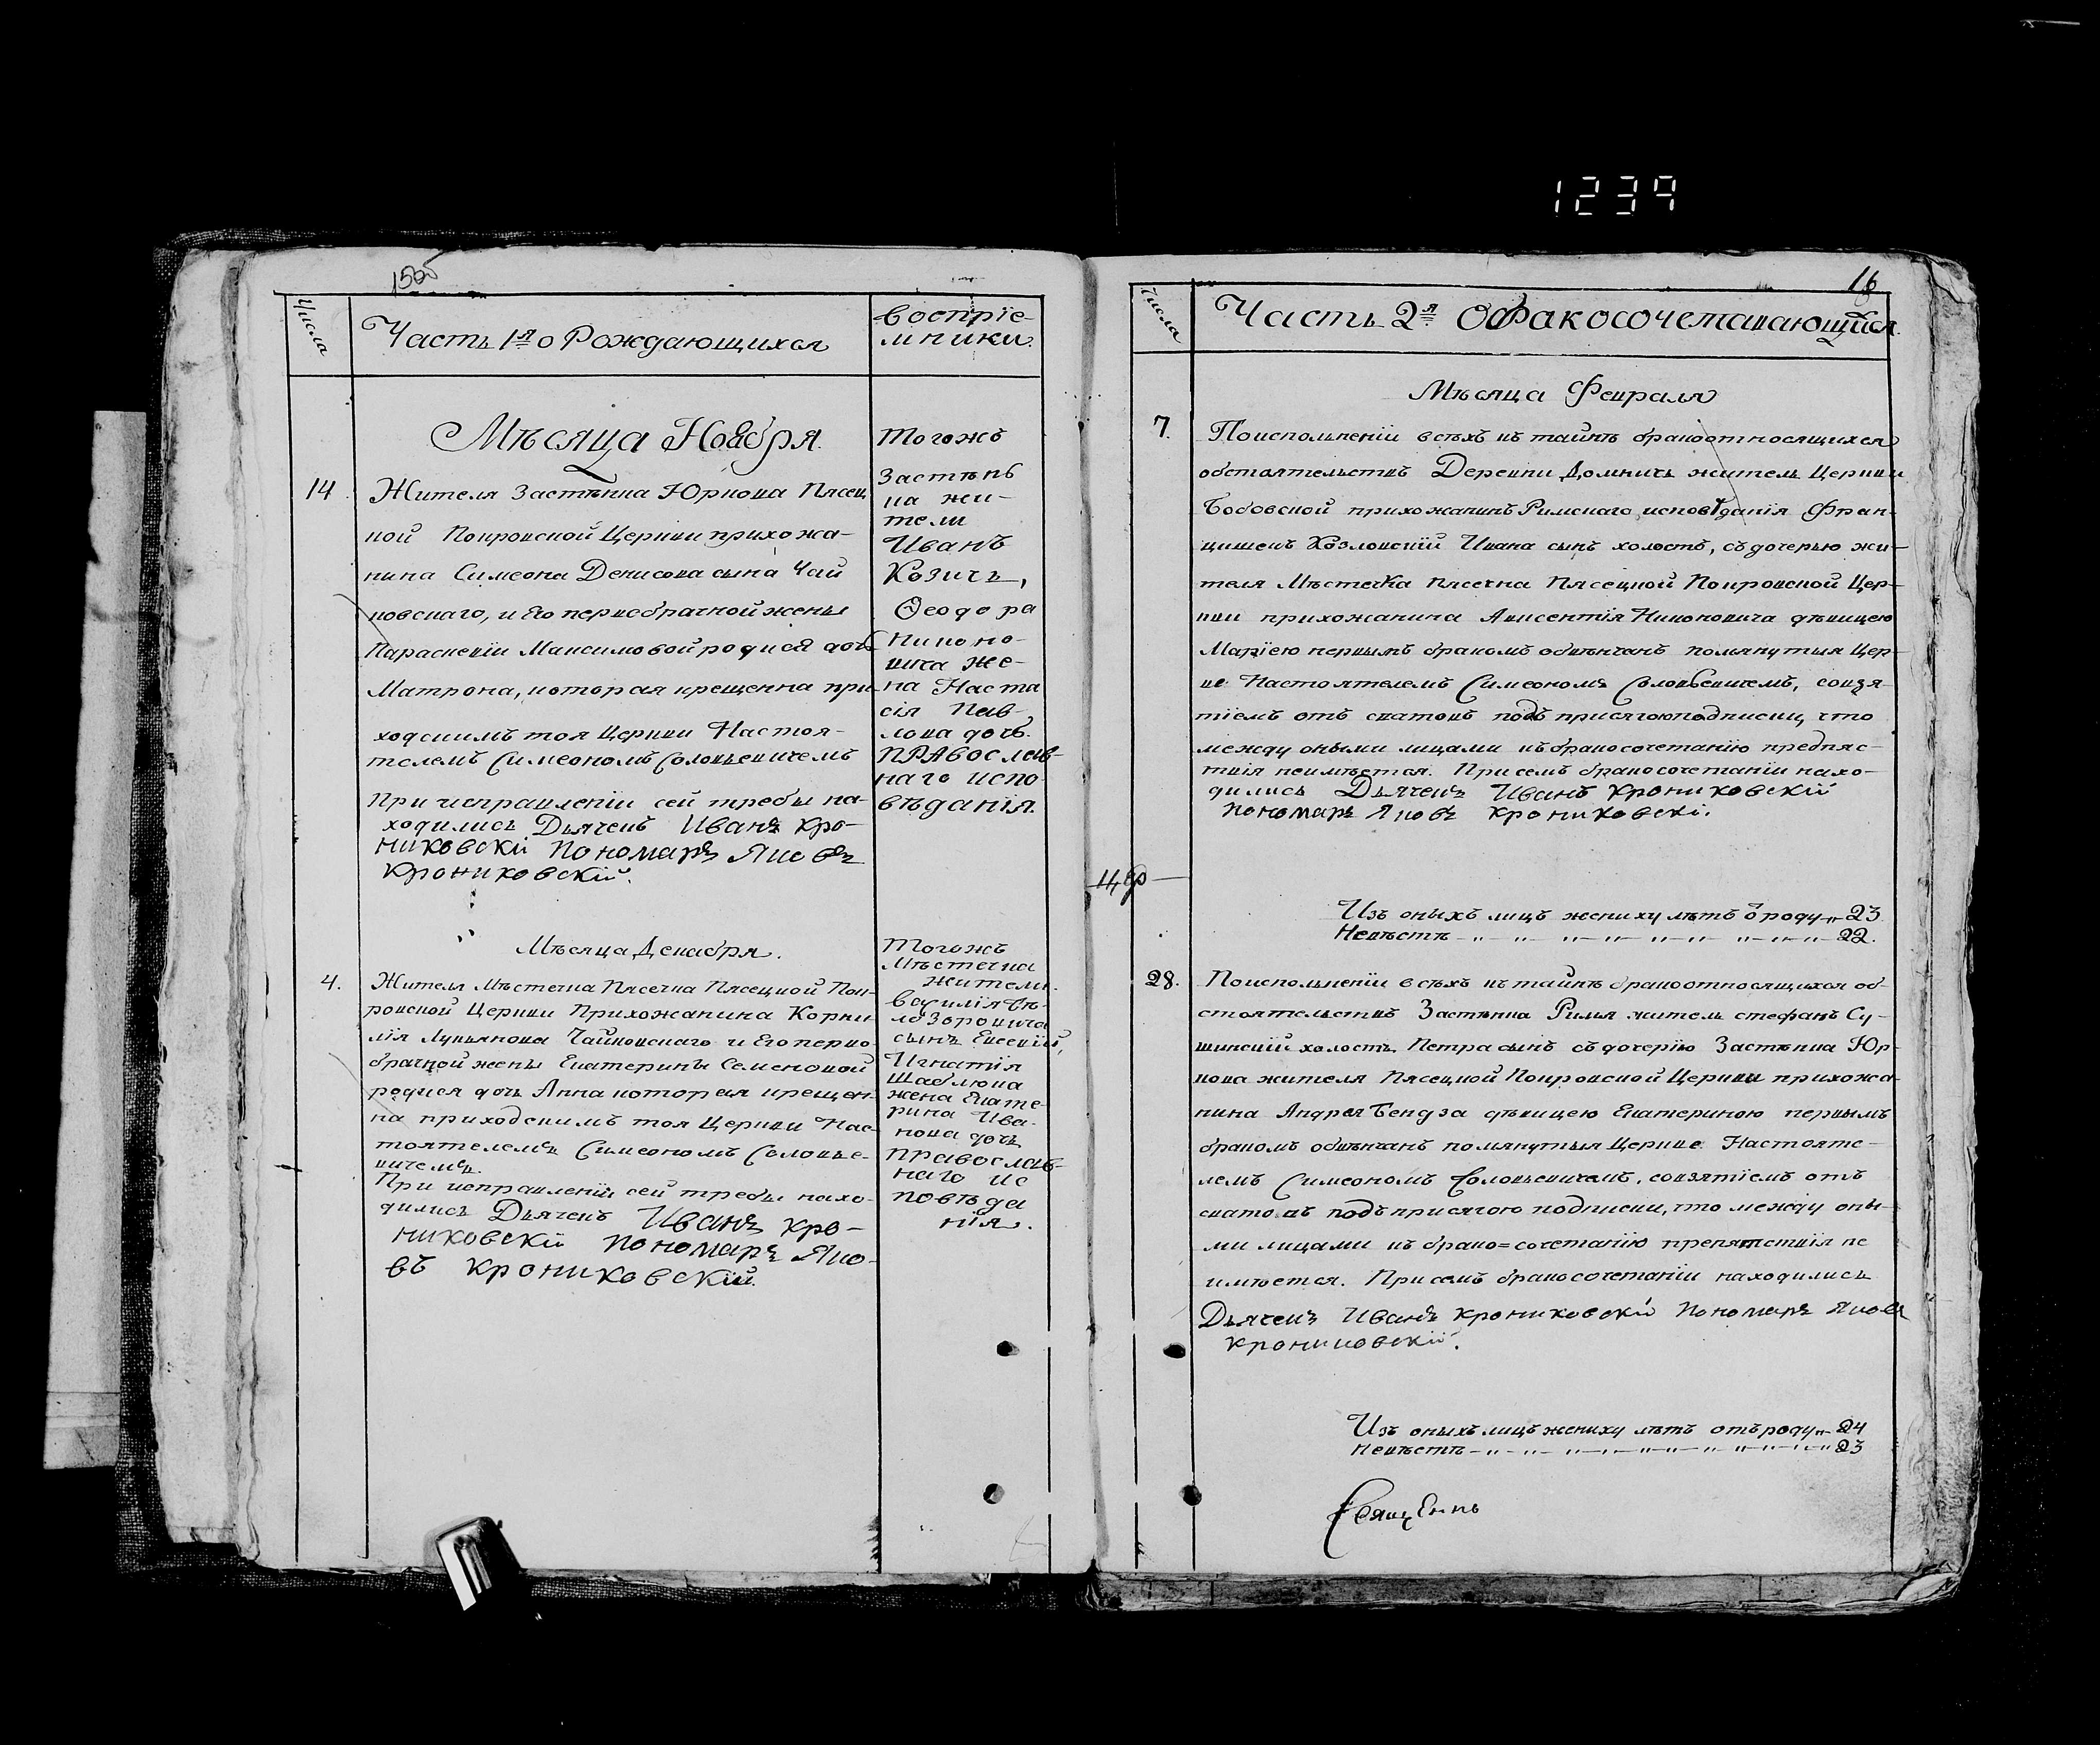 1239
15об
Числа
Часть 1я о Рождающихся
Воспріе-
мники.
Мѣсяца Ноября
14
Жителя Застѣнка Юркова Пясец
кой Покровской Церкви прихожа-
нина Симеона Денисова сына Чай
ковскаго, и Его первобрачной жены
Параскевіи Максимовой родися дочь
Матрона, которая крещенна при
ходскимъ тоя Церкви Настоя-
телемъ Симеономъ Соловьевичемъ
При исправленіи сей требы на-
ходились Дьячекъ Иванъ Кро-
никовскій Пономарь Яковъ
Крониковскій.
Тогожъ
Застѣн
ка жи-
тели
Иванъ
Козичъ,
Ѳеодора
Никоно-
вича же-
на Наста
сія Пав-
лова дочь.
Православ-
наго испо
вѣданія.
Мѣсяца Декабря.
4.
Жителя Мѣстечка Пясечна Пясецкой Пок-
ровской Церкви Прихожанина Корни-
лія Лукьянова Чайковскаго и Его перво
брачной жены Екатерины Семеновой
родися дочь Анна которая крещен-
на приходскимъ тоя Церкви Нас-
тоятелемъ Симеономъ Соловье-
вичемъ.
При исправленіи сей требы нахо-
дились Дьячекъ Иванъ Кро-
никовскій Пономарь Яко-
въ Крониковскій.
Тогожъ
Мѣстечка
жители
Василія Бѣ-
лозоровича
сынъ Евсевій,
Игнатія
Шаблюка
жена Екате-
рина Ива-
нова дочь
Православ-
наго ис
повѣда
нія.
16
Числа
Часть 2я О Бракосочетавающихся
Мѣсяца Февраля
7.
По исполненіи всѣхъ къ тайнѣ брака относящихся
обстоятельствъ Деревни Домничъ житель Церкви
Бобовской прихожанинъ Римскаго исповѣданія Фран-
цишекъ Козловскій Ивана сынъ холостъ, съ дочерью жи-
теля Мѣстечка Пясечна Пясецкой Покровской Цер-
кви прихожанина Авксентія Никоновича дѣвицею
Маріею первымъ бракомъ обвѣнчанъ помянутыя Цер-
кве Настоятелемъ Симеономъ Соловьевичемъ, совзя-
тіемъ отъ сватовъ подъ присягою подписки, что
между оными лицами къ бракосочетанію препяс-
твія неимѣется. При семъ бракосочетаніи нахо-
дились Дьячекъ Иванъ Крониковскій
Пономарь Яковъ Крониковскі.
Изъ оныхъ лицъ жениху лѣтъ о роду „ 23.
Невѣстѣ „ „ „ „ „ „ „ „ 22.
28.
По исполненіи всѣхъ къ тайнѣ брака относящихся об
стоятельствъ Застѣнка Рилья житель стефанъ Су-
шинскій холостъ Петра сынъ съ дочерію Застѣнка Юр-
кова жителя Пясецкой Покровской Церкви прихожа-
нина Андрея Бендза дѣвицею Екатериною первымъ
бракомъ обвѣнчанъ помянутыя Церкве Настояте-
лемъ Симеономъ Соловьевичемъ, совзятіемъ отъ
сватовъ подъ присягою подписки, что между оны-
ми лицами къ брако=сочетанію препятствія не
имѣется. При семъ бракосочетаніи находились
Дьячекъ Иванъ Крониковскій Пономарь Яковъ
Крониковскій.
Изъ оныхъ лицъ жениху лѣтъ отъ роду „ 24
Невѣстѣ „ „ „ „ „ „ „ „ 23
Священнъ